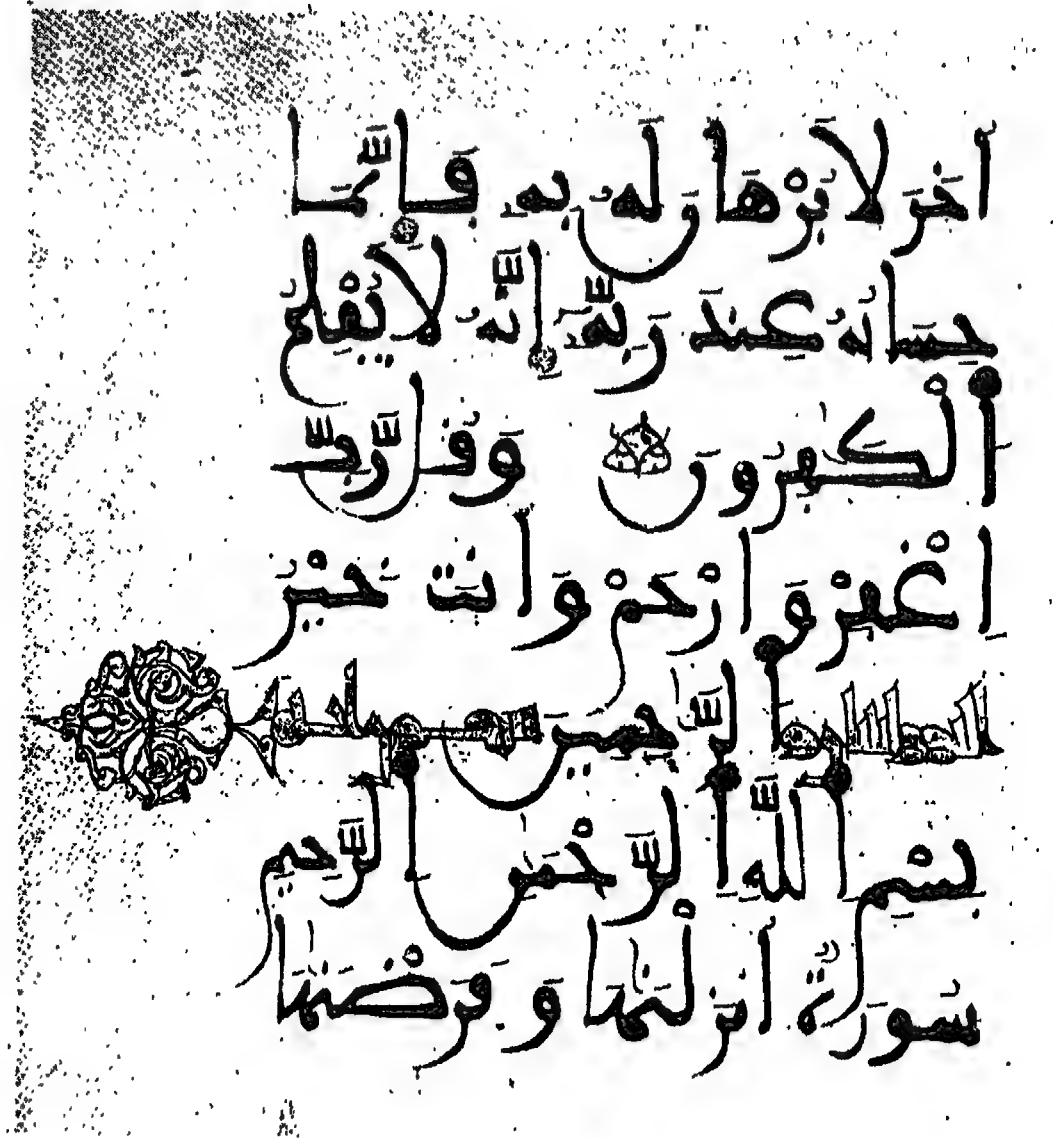 اخَرَ لَا بُرْهَانَ لَهُۥ بِهِۦ فَإِنَّمَا
حِسَابُهُۥ عِندَ رَبِّهِۦٓ إِنَّهُۥ لَا يُفْلِحُ
اُ۬لْكَٰفِرُونَ وَقُل رَّبِّ
اِ۪غْفِرْ وَارْحَمْ وَأَنتَ خَيْرُ
اُ۬لرَّٰحِمِينَ
بِسْمِ اِ۬للَّهِ اِ۬لرَّحْمَٰنِ اِ۬لرَّحِيمِ
سُورَةٌ اَنزَلْنَٰهَا وَفَرَضْنَٰهَا